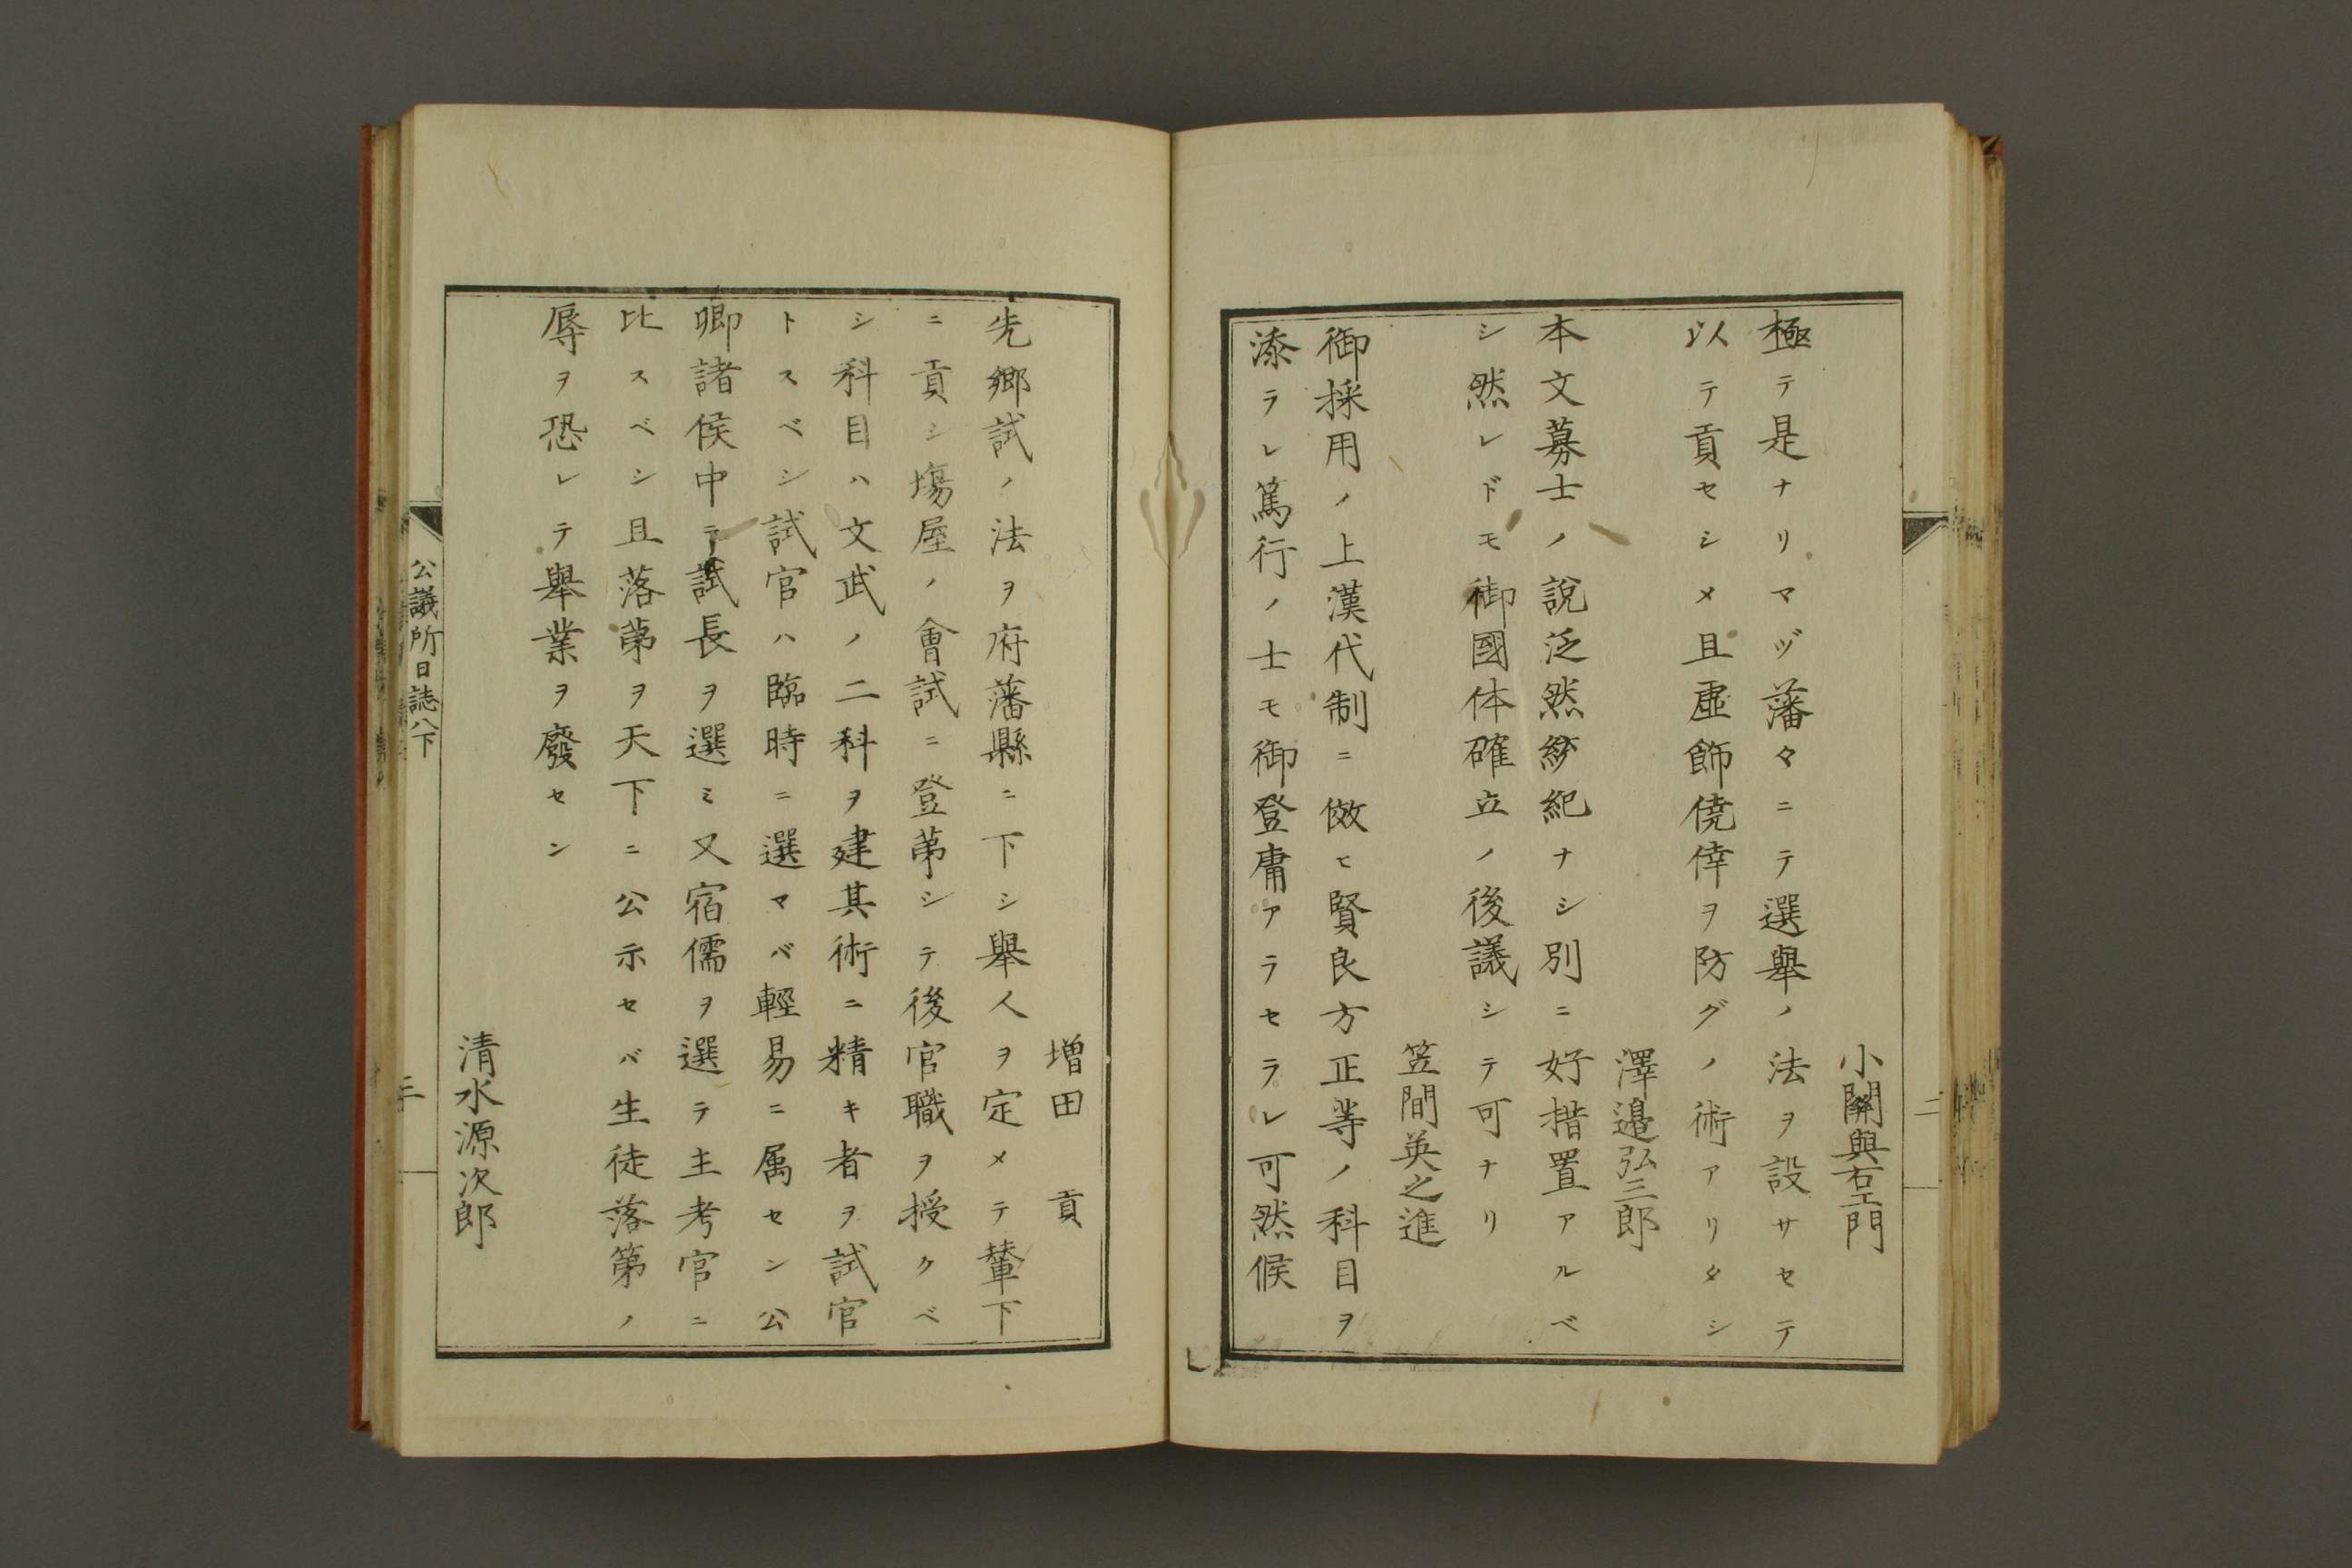 小關與右エ門
極テ是ナリマヅ藩々ニテ選舉ノ法ヲ設サセテ
以テ貢セシメ且虛飾僥倖ヲ防グノ術アリタシ
澤邉弘三郎
本文募士ノ說泛然綱紀ナシ別ニ好措置アルベ
シ然レドモ御國体確立ノ後議シテ可ナリ
笠間英之進
御採用ノ上漢代制ニ倣ヒ賢良方正等ノ科目ヲ
添ラレ篤行ノ士モ御登庸アラセラレ可然候
二
増田貢
先鄉試ノ法ヲ府藩縣ニ下シ舉人ヲ定メテ輦下
ニ貢シ塲屋ノ會試ニ登苐シテ後官職ヲ授クベ
シ科目ハ文武ノ二科ヲ建其術ニ精キ者ヲ試官
トスベシ試官ハ臨時ニ選マバ輕易ニ属セン公
卿諸侯中テ試長ヲ選ミ又宿儒ヲ選テ主考官ニ
比スベシ且落苐ヲ天下ニ公示セバ生徒落第ノ
辱ヲ恐レテ舉業ヲ廢セン
清水源次郎
公議所日誌八下